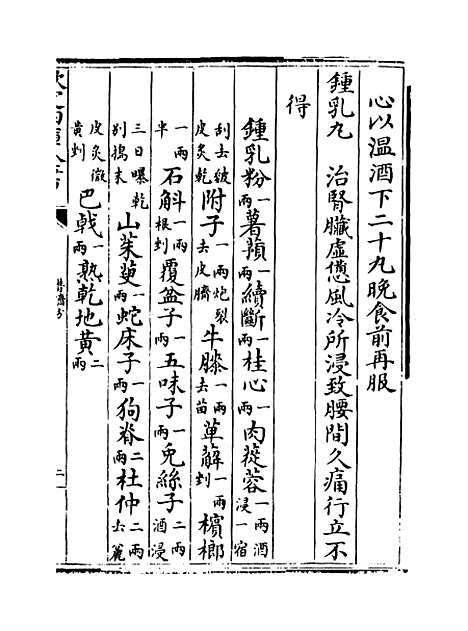 心以温酒下二十丸晚食前再服
鍾乳丸 治腎臟虛憊風冷所浸致腰間久痛行立不
得
鍾乳粉一兩薯蕷一兩續斷一兩桂心一兩肉蓯蓉一兩酒浸一宿
刮去皴皮炙乾附子一兩炮裂去皮臍牛膝一兩去苗萆薢一兩剉檳榔
一兩半石斛一兩根剉覆盆子一兩五味子一兩兔絲子二兩酒浸
三日曝乾别搗末山茱萸一兩蛇床子一兩狗脊二兩杜仲二兩去麄
皮炙微黄剉巴戟一兩熟乾地黄二兩
普濟方